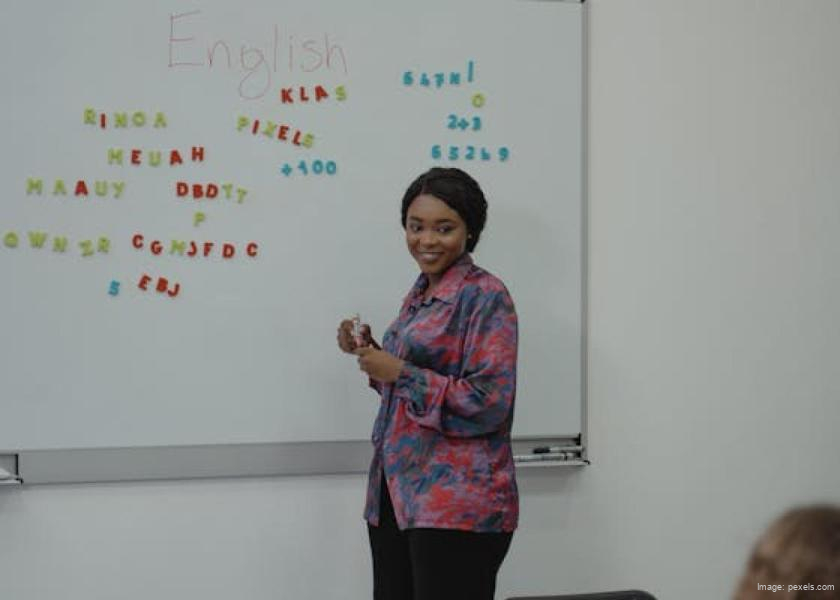 English
KLAS
PIXELS
+400
RINOA
MEUAH
MAAUY
DBDYT
P
QWNZR
CGMJFDC
5 EBJ
647N
0
2+3
65269
Image: pexels.com